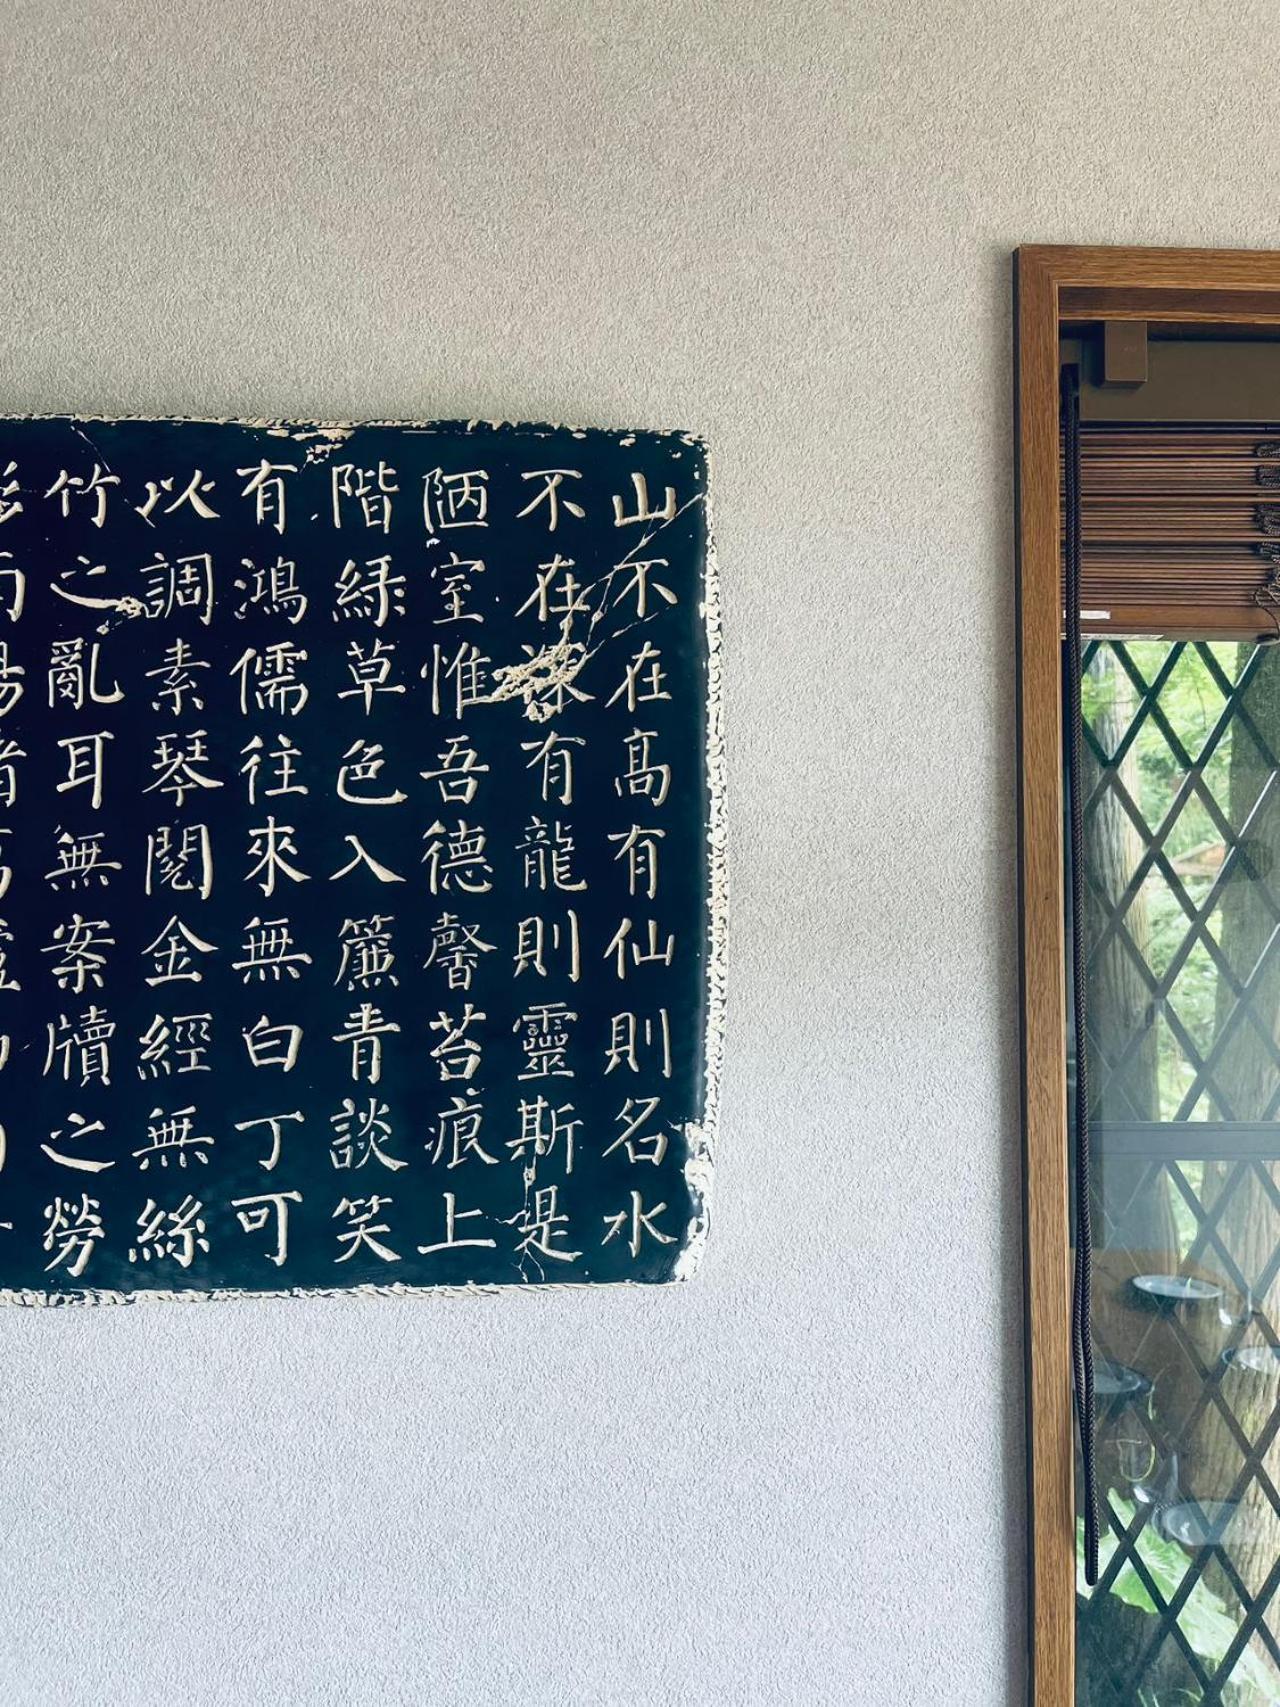 山不在髙有仙則名水
不在深有龍則靈斯是
陋室惟吾德馨苔痕上
階綠草色入簾青談笑
有鴻儒往來無白丁可
以調素琴閱金經無絲
竹之亂耳無案牘之勞